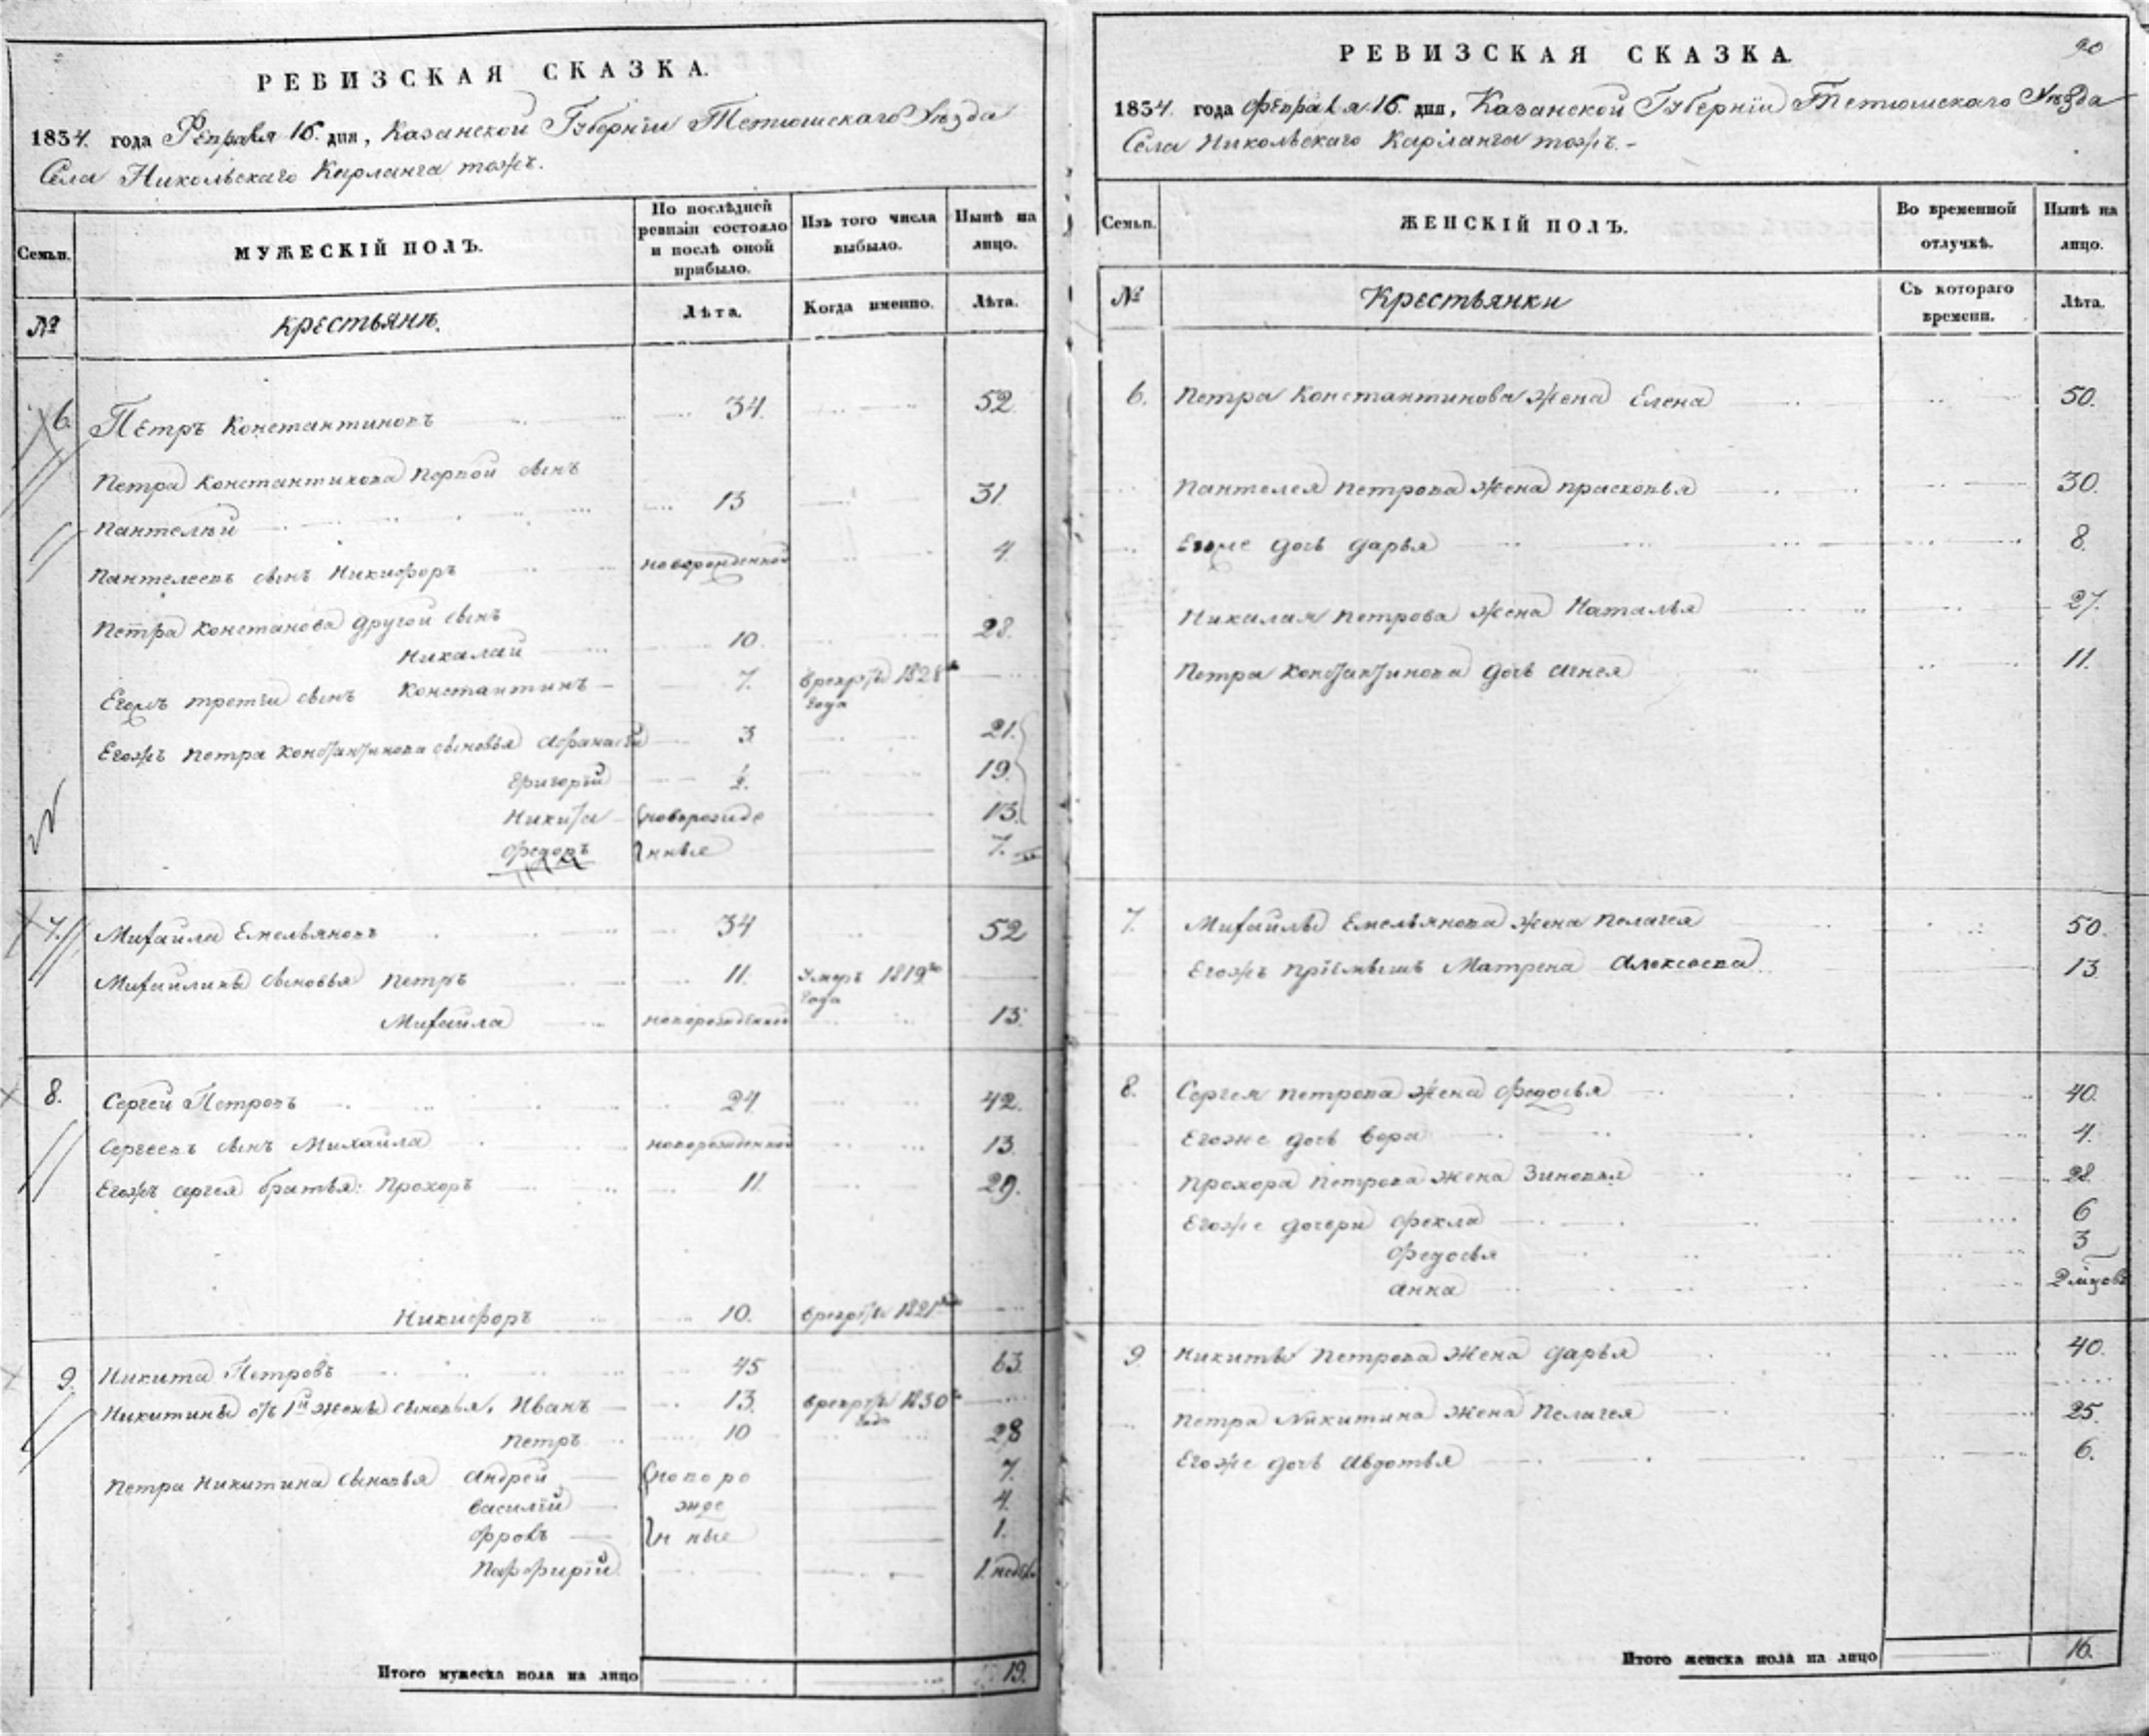 РЕВИЗСКАЯ СКАЗКА.
1834. года Февраля 16. дня, Казанской Губернїи Тетюшскаго Уѣзда
Села Никольскаго Карланга тожъ.
Семьи.
МУЖЕСКІЙ ПОЛЪ.
По послѣдней ревизіи состояло и послѣ оной прибыло.
Изъ того числа выбыло.
Нынѣ на лицо.
№
Крестьянѣ.
Лѣта.
Когда именно.
Лѣта.
6. Петръ Константиновъ 34. 52
Петра Константинова первой сынъ
Пантелѣй 13 31
Пантелеевъ сынъ Никифоръ новорожденной 4
Петра Констанова другой сынъ
Никалай 10. 28.
Егожъ третїи сынъ Константинъ 7. в рекруты 1828го
года
Егожъ Петра Константинова сыновья Афанасїй 3 21.
Григорїй ½ 19.
Никита новорожде 13.
Федоръ нныя 7.
7. Михайла Емельяновъ 34 52
Михайлины сыновья Петръ 11. Умеръ 1819го
года
Михайла новорожденной 13.
8. Сергей Петровъ 24 42.
Сергеевъ сынъ Михайла новорожденной 13
Егожъ сергея братья: Прохоръ 11 29.
Никифоръ 10. в рекруты 1821
9. Никита Петровъ 45 63.
Никитины отъ 1й жены сыновья. Иванъ 13. в рекруты 1830го
года
Петръ 10 28
Петра Никитина сыновья Андрей новоро 7.
Василїй жде 4.
Фролъ нные 1.
Порфирїй 1. недѣл.
Итого мужеска пола на лицо 19.
РЕВИЗСКАЯ СКАЗКА.
90
1834. года Февраля 16. дня, Казанской Губернїи Тетюшскаго Уѣзда
Села Никольскаго Карланга тожъ.-
Семьи.
ЖЕНСКІЙ ПОЛЪ.
Во временной отлучкѣ.
Нынѣ на лицо.
№
Крестьянки
Съ котораго времени.
Лѣта.
6. Петра Константинова жена Елена 50.
Пантелея Петрова жена прасковья 30.
Егоже дочь дарья 8.
Никалая Петрова жена Наталья 27.
Петра Константинова дочь Агнея 11.
7. Михайлы Емельянова жена Пелагея 50.
Егожъ прїемышъ Матрена Алексѣева 13
8. Сергея Петрова жена Федосья 40.
Егоже дочь Вера 4.
Прохора Петрова жена Зиновья 28
Егоже дочери Фекла 6
Федосья 3
Анна 2 мцовъ
9. Никиты Петрова жена дарья 40.
Петра Никитина жена Пелагея 25.
Егоже дочь Авдотья 6.
Итого женска пола на лицо 16.